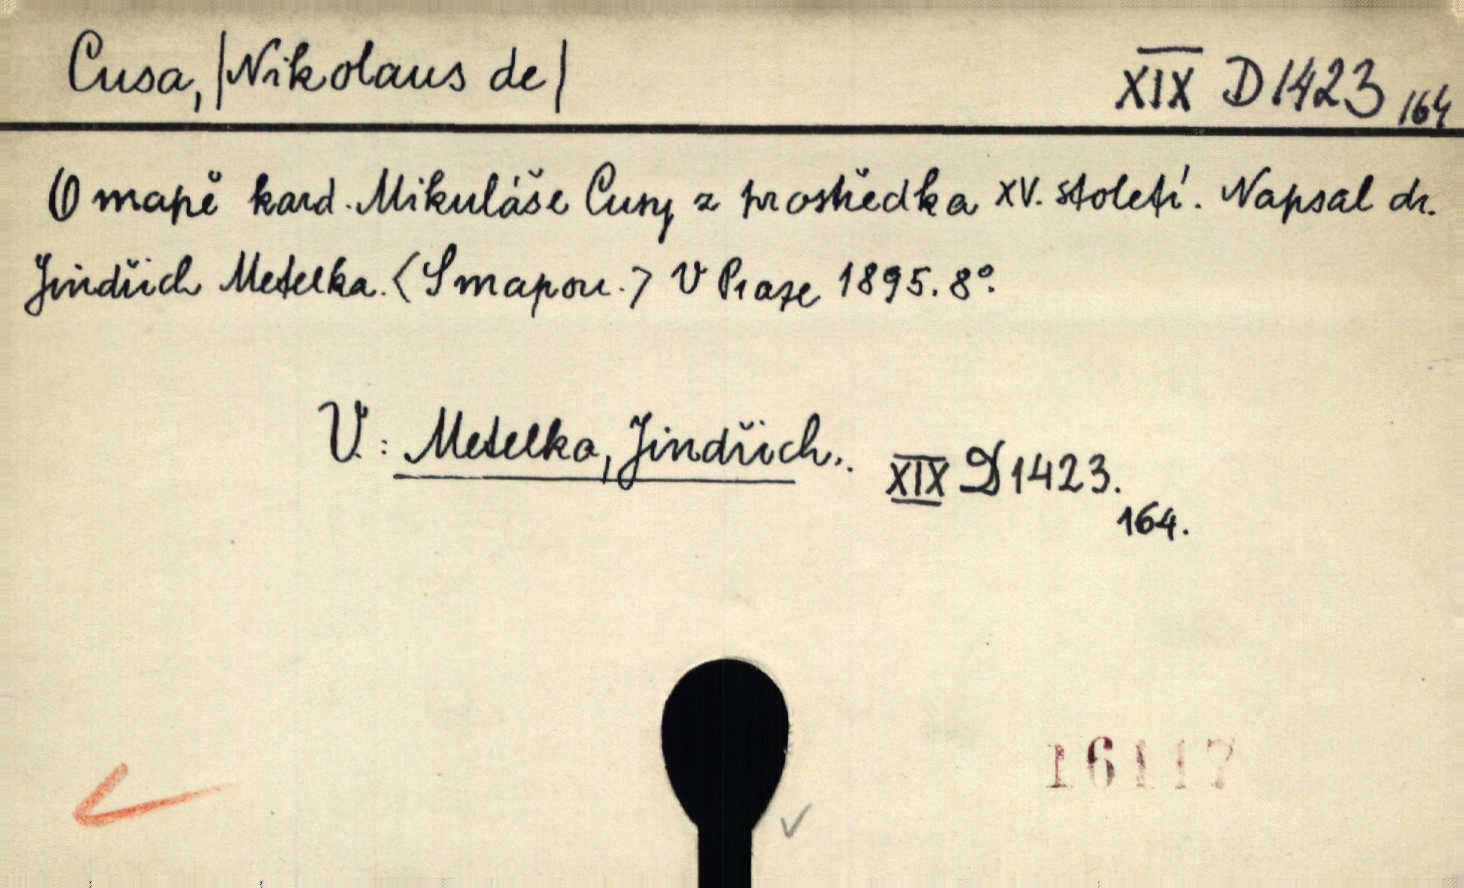 Cusa, |Nikolaus de|
XIX D 1423 164
O mapě kard. Mikuláše Cusy z prostředka XV. století. Napsal dr.
Jindřich Metelka. <S mapou.> V Praze 1895. 8°.
V.: Metelka, Jindřich.
XIX D 1423.
164.
16117